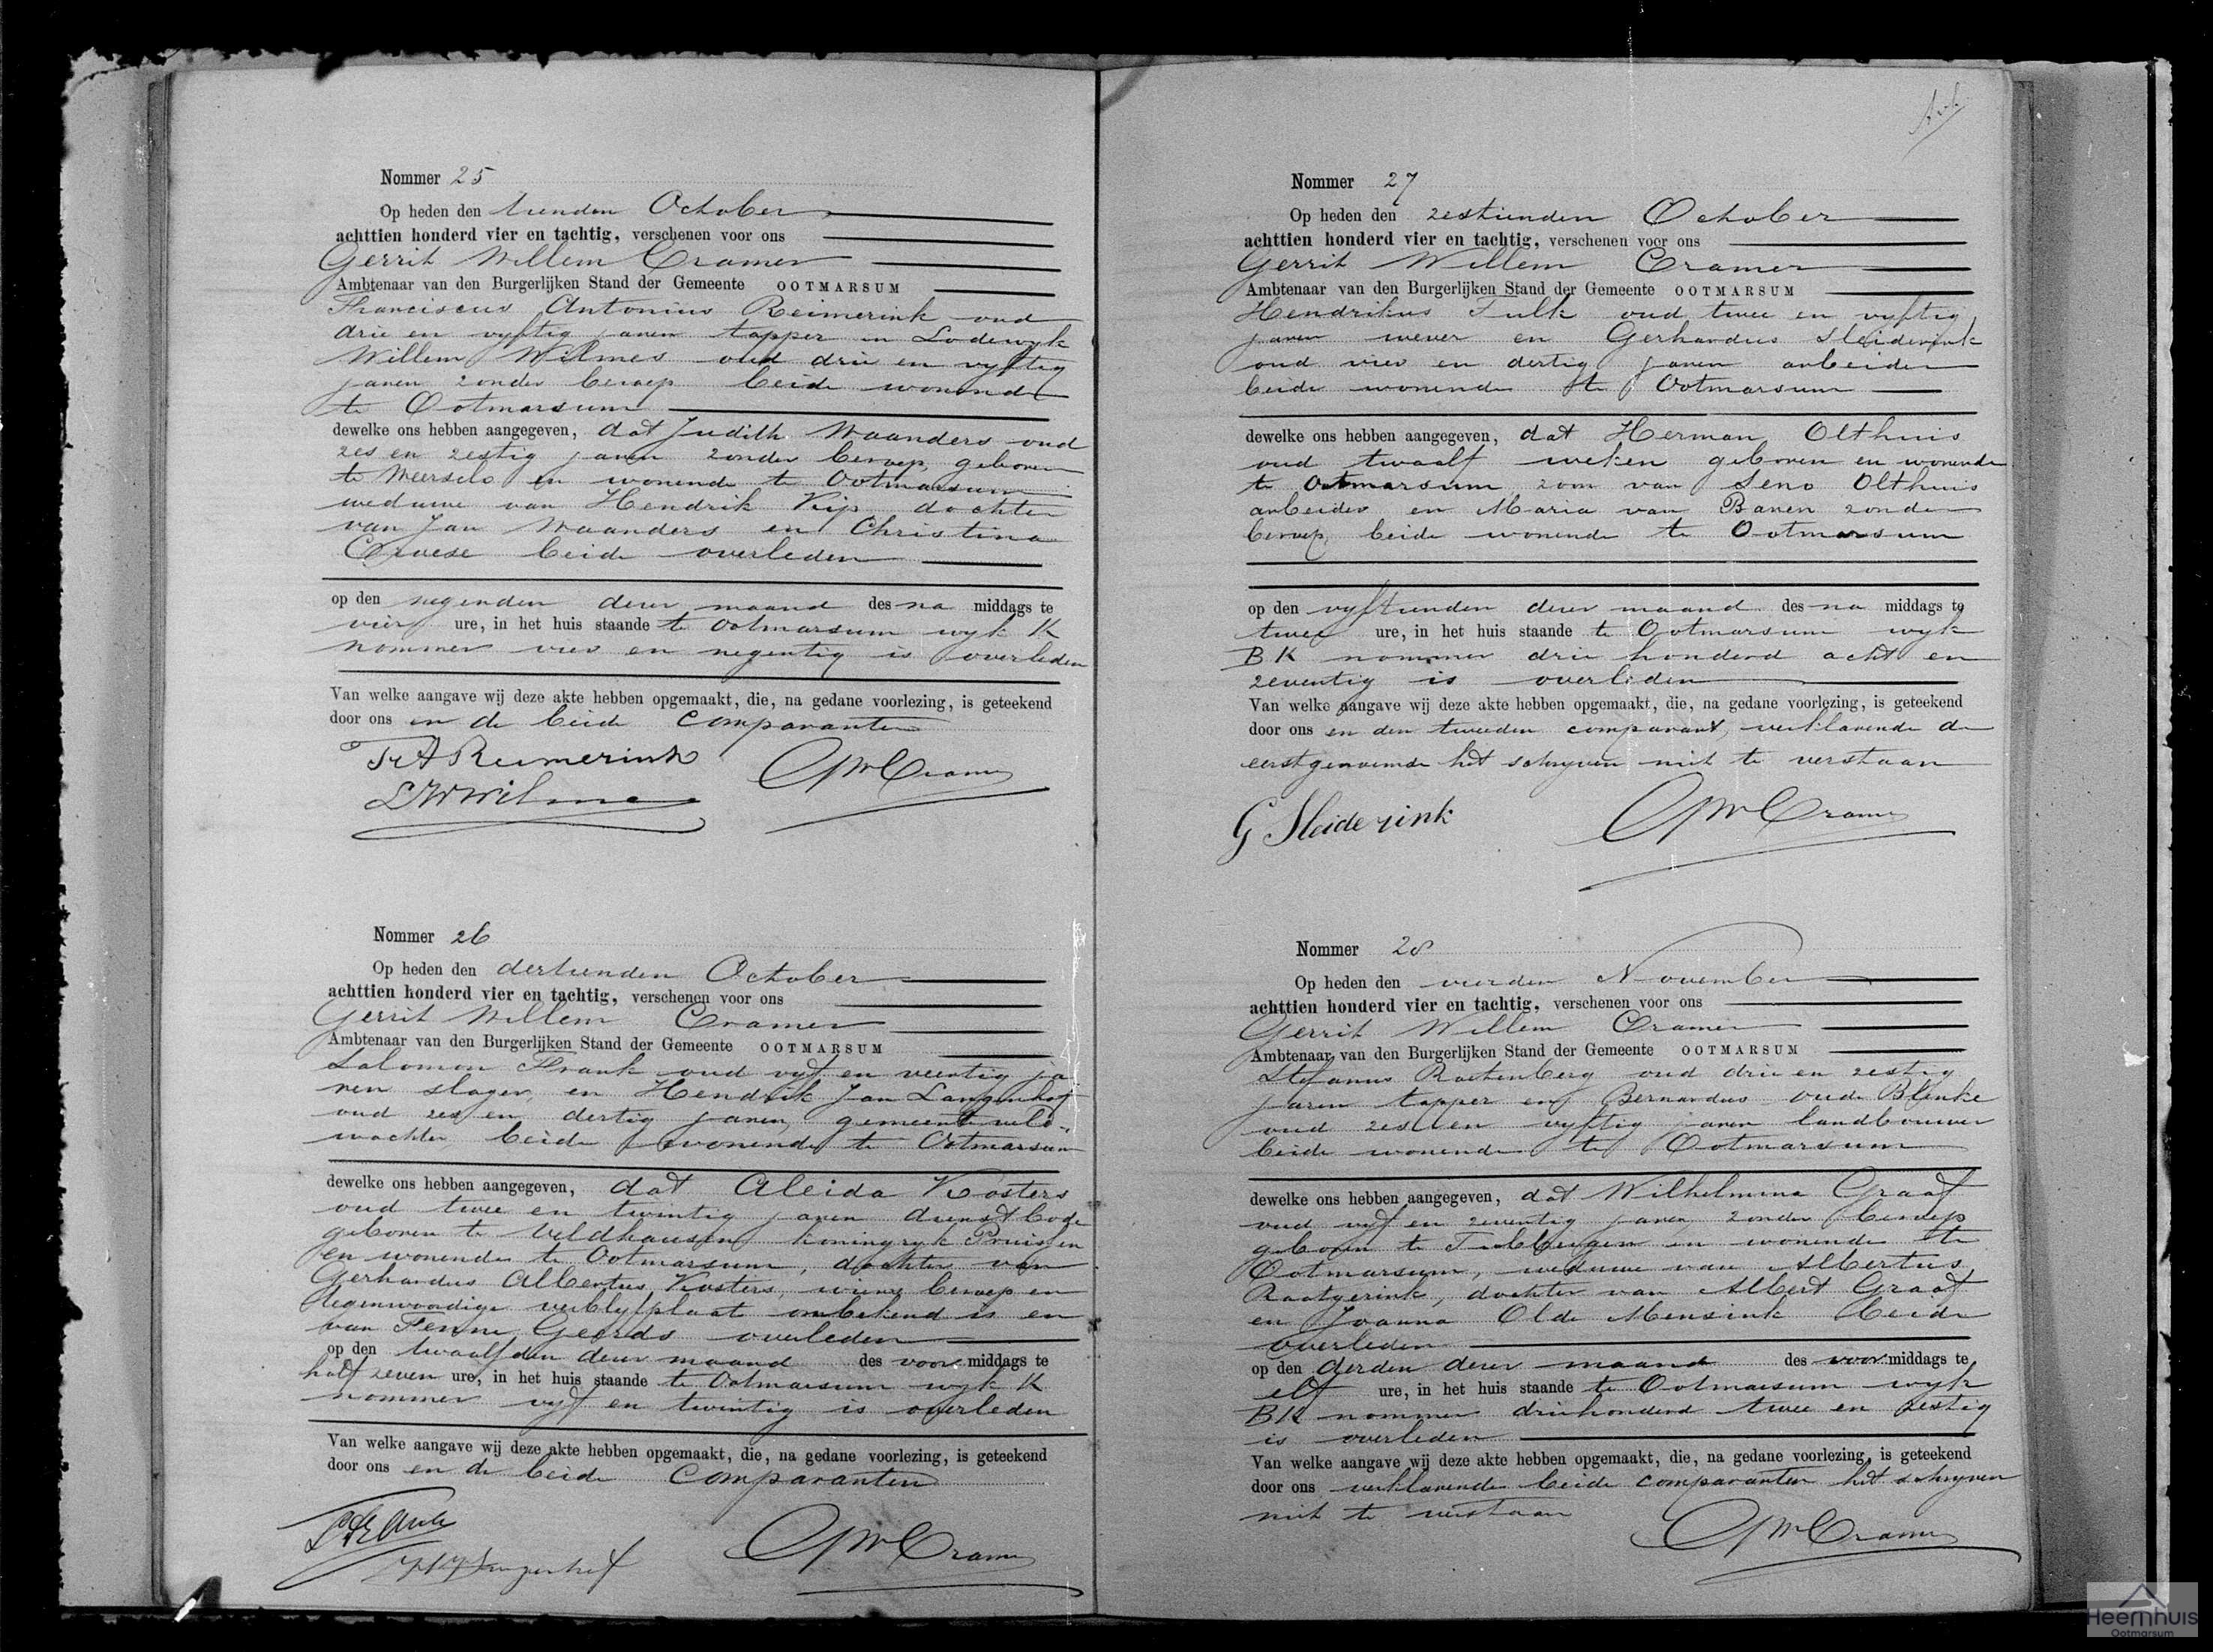 Nommer 25
Op heden den tienden October
achttien honderd vier en tachtig, verschenen voor ons
Gerrit Willem Cramer
Ambtenaar van den Burgerlijken Stand der Gemeente OOTMARSUM
Franciscus Antonius Reimerink oud
drie en vyftig jaren tapper en Lodewyk
Willem Wilmes oud drie en vyftig
jaren zonder beroep beide wonende
te Ootmarsum
dewelke ons hebben aangegeven, dat Judith Waanders oud
zes en zestig jaren zonder beroep, geboren
te Weerselo en wonende te Ootmarsum
weduwe van Hendrik Kip dochter
van Jan Waanders en Christina
Croese beide overleden
op den negenden dezer maand des na middags te
vier ure, in het huis staande te Ootmarsum wyk K
nommer vier en negentig is overleden
Van welke aangave wij deze akte hebben opgemaakt, die, na gedane voorlezing, is geteekend
door ons en de beide comparanten
Fr A Reimerink
GW Cramer
L W Wilmes
Nommer 26
Op heden den dertienden October
achttien honderd vier en tachtig, verschenen voor ons
Gerrit Willem Cramer
Ambtenaar van den Burgerlijken Stand der Gemeente OOTMARSUM
Salomon Frank oud vyf en veertig ja
ren slager, en Hendrik Jan Langenhof
oud zes en dertig jaren, gemeente veld-
wachter beide wonende te Ootmarsum
dewelke ons hebben aangegeven, dat Aleida Kosters
oud twee en twintig jaren dienstbode
geboren te Veldhausen koningryk Pruissen
en wonende te Ootmarsum, dochter van
Gerhardus Albertus Kosters, wiens beroep en
tegenwoordige verblyfplaat onbekend is en
van Fenne Geerds overleden
op den twaalfden dezer maand des voor middags te
half zeven ure, in het huis staande te Ootmarsum wyk K
nommer vyf en twintig is overleden
Van welke aangave wij deze akte hebben opgemaakt, die, na gedane voorlezing, is geteekend
door ons en de beide comparanten
HJ Langenhof
GW Cramer
Nommer 27
Op heden den zestienden October
achttien honderd vier en tachtig, verschenen voor ons
Gerrit Willem Cramer
Ambtenaar van den Burgerlijken Stand der Gemeente OOTMARSUM
Hendrikus Tulk oud twee en vyftig
jaren wever en Gerhardus Sleiderink
oud vier en dertig jaren arbeider
beide wonende te Ootmarsum
dewelke ons hebben aangegeven, dat Herman Olthuis
oud twaalf weken geboren en wonende
te Ootmarsum zoon van Seno Olthuis
arbeider en Maria van Baren zonder
beroep, beide wonende te Ootmarsum
op den vyftienden dezer maand des na middags te
twee ure, in het huis staande te Ootmarsum wyk
BK nommer drie honderd acht en
zeventig is overleden
Van welke aangave wij deze akte hebben opgemaakt, die, na gedane voorlezing, is geteekend
door ons en den tweeden comparant, verklarende de
eerstgenoemde het schryven niet te verstaan
G Sleiderink
GW Cramer
Nommer 28
Op heden den vierden November
achttien honderd vier en tachtig, verschenen voor ons
Gerrit Willem Cramer
Ambtenaar van den Burgerlijken Stand der Gemeente OOTMARSUM
Stefanus Rostenberg oud drie en zestig
jaren tapper en Bernardus oude Blenke
oud zes en vyftig jaren landbouwer
beide wonende te Ootmarsum
dewelke ons hebben aangegeven, dat Wilhelmina Graaf
oud vyf en zeventig jaren, zonder beroep
geboren te Tubbergen en wonende te
Ootmarsum, weduwe van Albertus
Raatgerink, dochter van Albert Graaf
en Joanna Olde Mensink beide
overleden
op den derden dezer maand des voor middags te
elf ure, in het huis staande te Ootmarsum wyk
BK nommer driehonderd twee en zestig
is overleden
Van welke aangave wij deze akte hebben opgemaakt, die, na gedane voorlezing, is geteekend
door ons verklarende beide comparanten het schryven
niet te verstaan
GW Cramer
Heernhuis
Ootmarsum